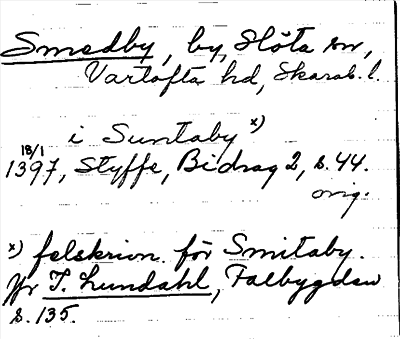 Smedby, by, Slöta sn,
Vartofta hd, Skarab. l.
i Suntaby x)
18/1
1397, Styffe, Bidrag 2, s. 44.
orig.
x) felskrivn. för Smitaby.
Jfr I. Lundahl, Falbygden
s. 135.